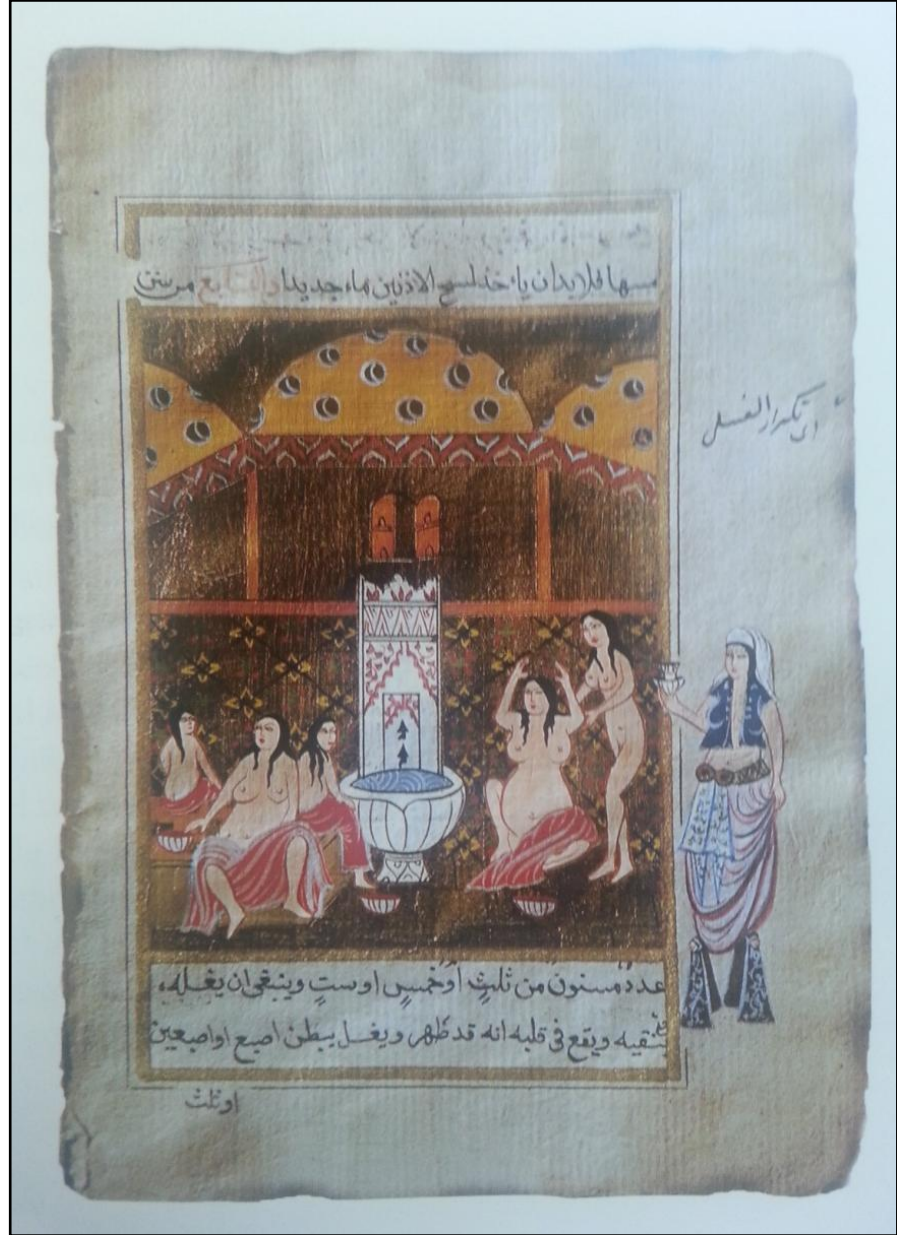 مسها فلابدان ياءخذ لمسح الاذنين ماء جديدا والسابع من سنن
اى تكرار الغسل
عدد مسنون من ثلث اوخمس اوست وينبغى ان يغسله،
ينقيه ويقع فى قلبه انه قد طهر ويغسل ببطن اصبع اواصبعين
اوثلث